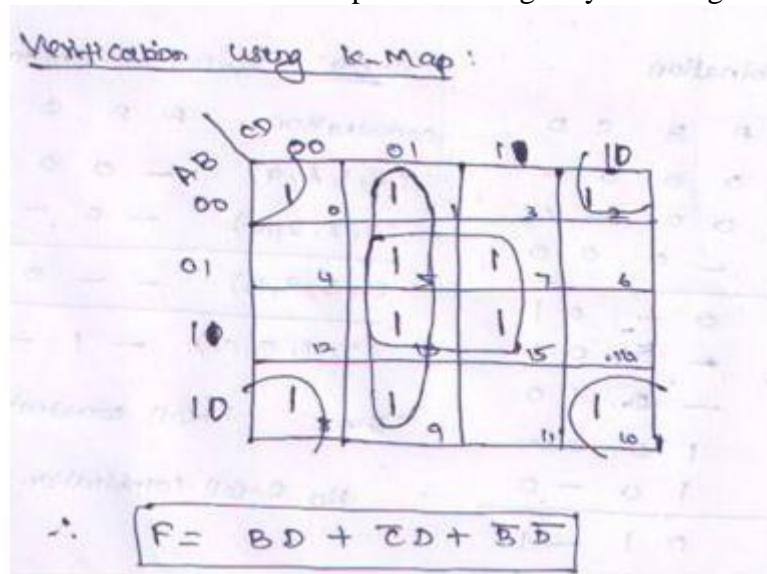 Verification using K-Map:
CD
AB
00 01 11 10
00 1 0 1 1 3 1 2
01 4 1 5 1 7 6
11 12 1 13 1 15 14
10 1 8 1 9 11 1 10
∴ F = BD + C̅D + B̅D̅